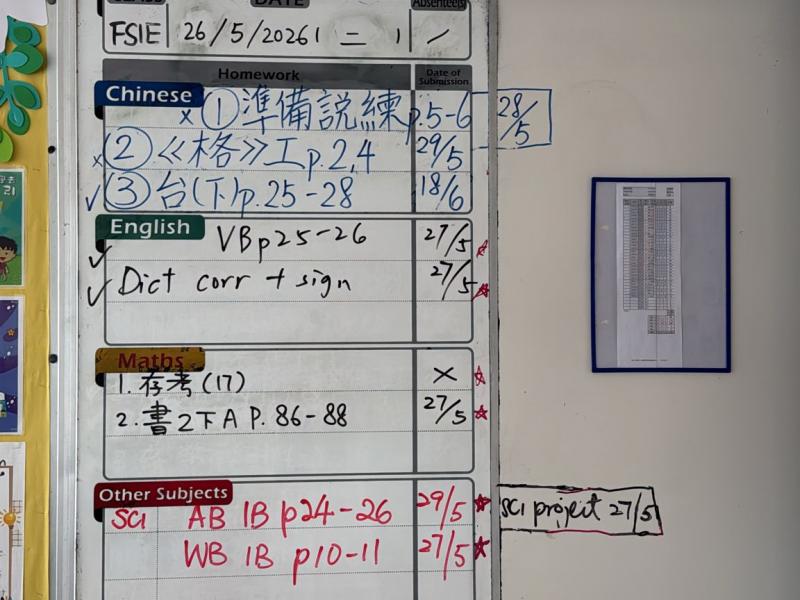 DATE
Absentees
FSIE 26/5/2026 ( 二 ) /
Homework Date of Submission
Chinese
x ① 準備說練 p.5-6 28/5
x ② 《格》工 p.2,4 29/5
✓ ③ 台(下)p.25-28 18/6
English
VB p25-26 27/5 ☆
✓
✓ Dict corr + sign 27/5 ☆
Maths
1. 存考(17) × ☆
2. 書2下A P. 86-88 27/5 ☆
Other Subjects
SCI AB 1B p24-26 29/5 ★ SCI project 27/5
WB 1B p10-11 27/5 ★